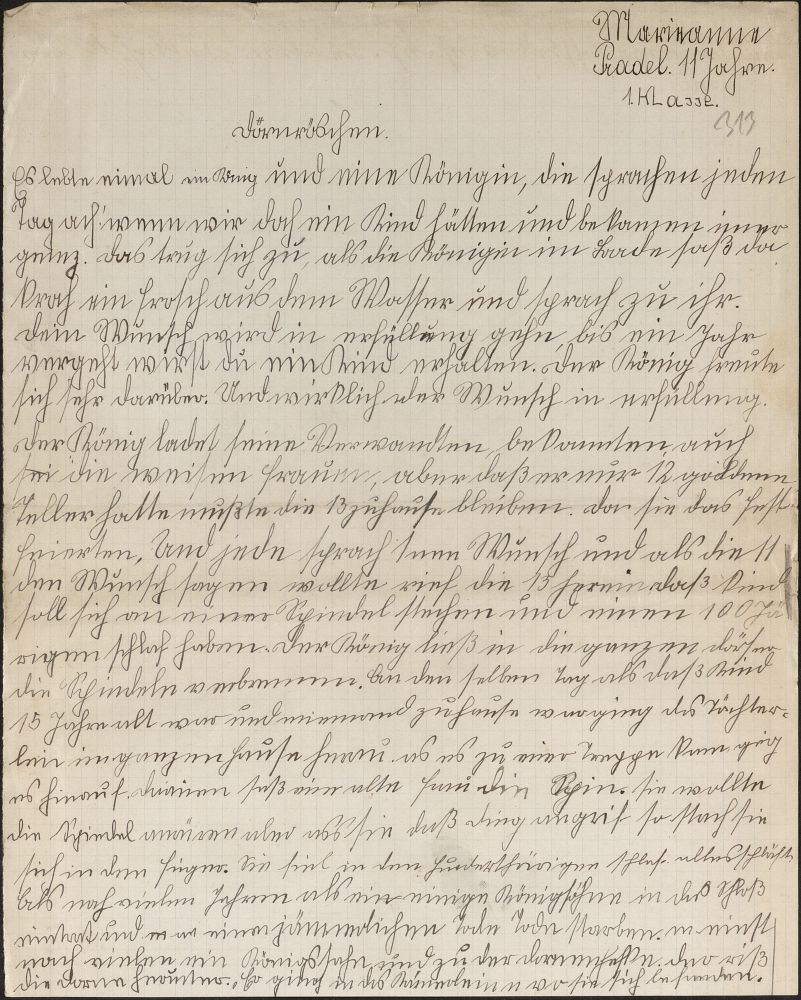 Marieanne
Pradel. 11 Jahre.
1. KLasse.
313
Dörnröschen.
Es lebte eimal ein König und eine Königin, die sprachen jeden
Tag ach! wenn wir doh ein Kind hätten und bekamen imer
geinz. Das trug sich zu, als die Königin im Bade saß da
kroh ein Frosch aus dem Wasser und sprach zu ihr.
Dein Wunsch wird in erfüllung gehn, bis ein Jahr
vergeht wirst du ein Kind erhalten. Der König freute
sich sehr darüber. Und wirklich der Wunsch in erfüllung.
Der König ladet seine Verwandten, bekannten, auch
die weisen Frauen, aber daß er nur 12 goldene
Teller hatte mußte die 13 zuhause bleiben. Da sie das Fest
feierten, Und jede sprach ihren Wunsch und als die 11
den Wunsch sagen wollte rief die 13 herein daß Kind
soll sich an einer Spindel stechen und einen 100 Jä
rigen schlaf haben. Der König ließ in die ganzen dörfer
die Spindeln verbrennen. An den selben Tag als daß Kind
15 Jahre alt war und niemand zuhause war ging das Töchter-
lein im ganzen Hause herum. as es zu einer Treppe kam gig
es hinauf. Drainen saß eine alte Frau die Spin. sie wollte
die Spindel anrüren aber als sie daß ding angrif so stach sie
sich in den finger. Sie fiel in den hunderthärigen schlaf. alles schläft.
Als nah vielen Jahren als ein einige Königsöhne in das Schloß
eintrat und an einen jämmerlichen Tode Tode starben. en einst
nach vielen ein Königssohn und zu der dornenhecke. der riß
die dorne herunter. Er ging in das Kämerlein wo sie sich befanden.